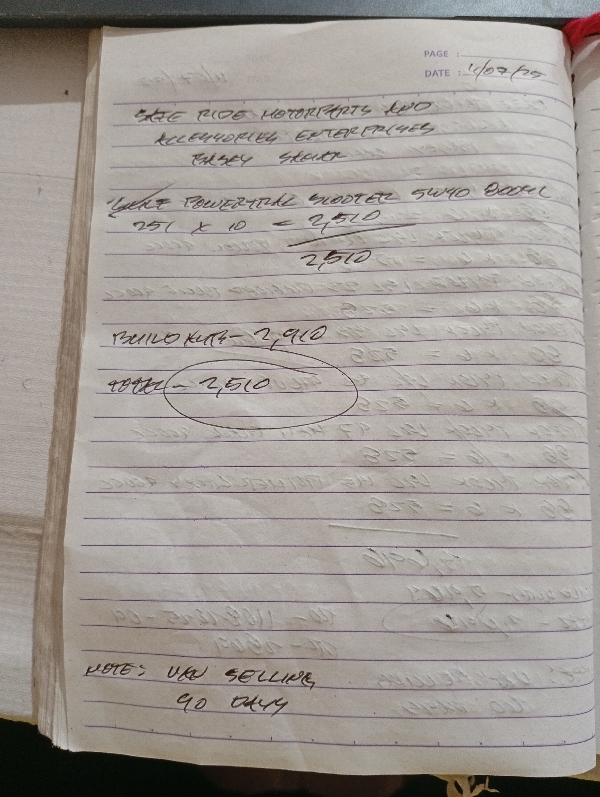 PAGE :
DATE : 11/07/25
SAFE RIDE MOTORPARTS AND
ACCESSORIES ENTERPRISES
BASEY SAMAR
POWERTRAC SCOOTER 5W40 800ML
251 x 10 = 2,510
2,510
BUILD - 2,910
TOTAL - 2,510
NOTE: VAN SELLING
90 DAYS